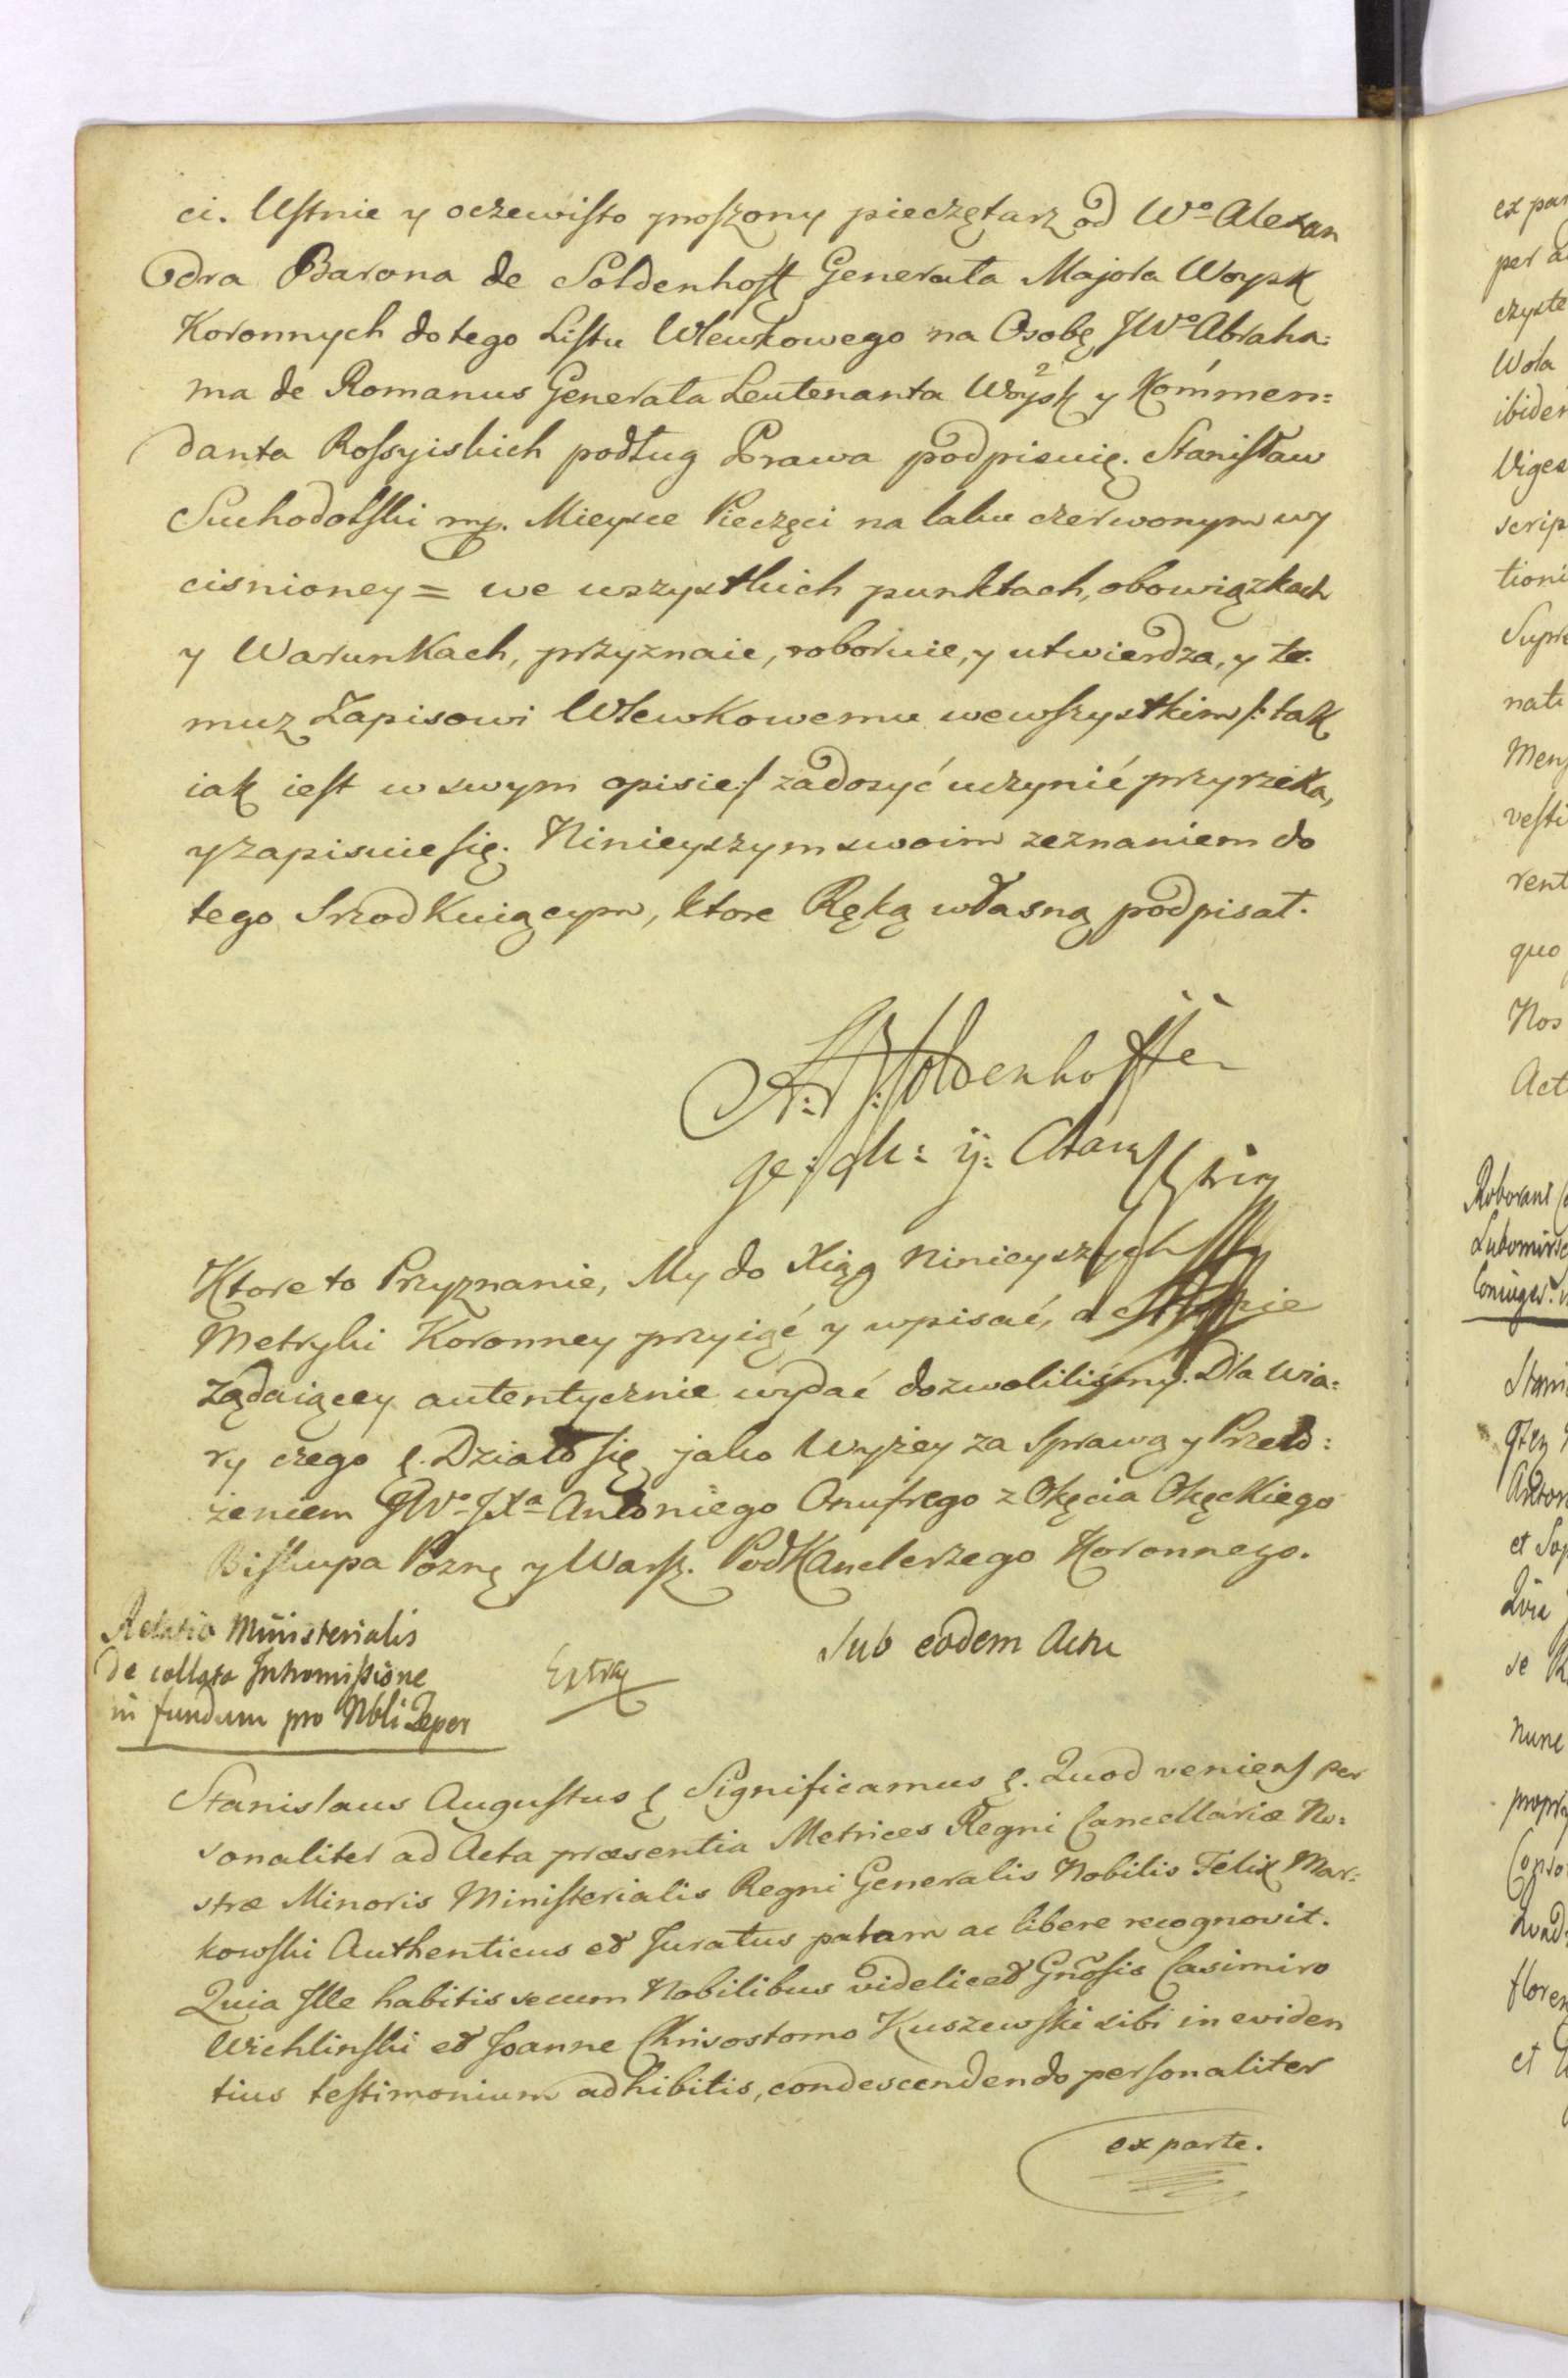 ci. Ustnie y oczewisto proszony pieczętarz od Wo Alexan
dra Barona de Soldenhoff Generała Majora Woysk
Koronnych do tego Listu Wlewkowego na Osobę JWo Abraha:
ma de Romanus Generała Leutenanta Woysk y Kommen:
danta Rossyiskich podług Prawa podpisuię. Stanisław
Suchodolski mp. Mieysce Pieczęci na laku czerwonym wy
cisnioney = we wszystkich punktach, obowiązkach
y Warunkach, przyznaie, roboruie, y utwierdza, y te:
muz Zapisowi Wlewkowemu we wszystkim /: tak
iak iest w swym opisie :/ zadosyć uczynić przyrzeka,
y zapisuie się. Ninieyszym swoim zeznaniem do
tego Srzodkuiącym, ktore Ręką własną podpisał.
Soldenhoff
Ktore to Przyznanie, My do Xiąg ninieyszych
Metryki Koronney przyiąć y wpisać, a Stronie
Ządaiącey autentycznie wydać dozwoliliśmy. Dla wia:
ry czego &. Działo się jako Wyżey za Sprawą y Przeło:
żeniem JWo JXa Antoniego Onufrego z Okęcia Okęckiego
Biskupa Pozn: y Warsz. PodKanclerzego Koronnego.
Relatio Ministerialis
de collata Intromissione
in fundum pro Nbli Zeper
Extrad
Sub eodem Actu
Stanislaus Augustus & Significamus &. Quod veniens per
sonaliter ad Acta præsentia Metrices Regni Cancellariæ No:
stræ Minoris Ministerialis Regni Generalis Nobilis Felix Mar:
kowski Authenticus et Juratus palam ac libere recognovit.
Quia Ille habitis secum Nobilibus videlicet Gnosis Casimiro
Wichlinski et Joanne Chrisostomo Kuszewski sibi in eviden
tius testimonium adhibitis, condescendendo personaliter
ex parte.